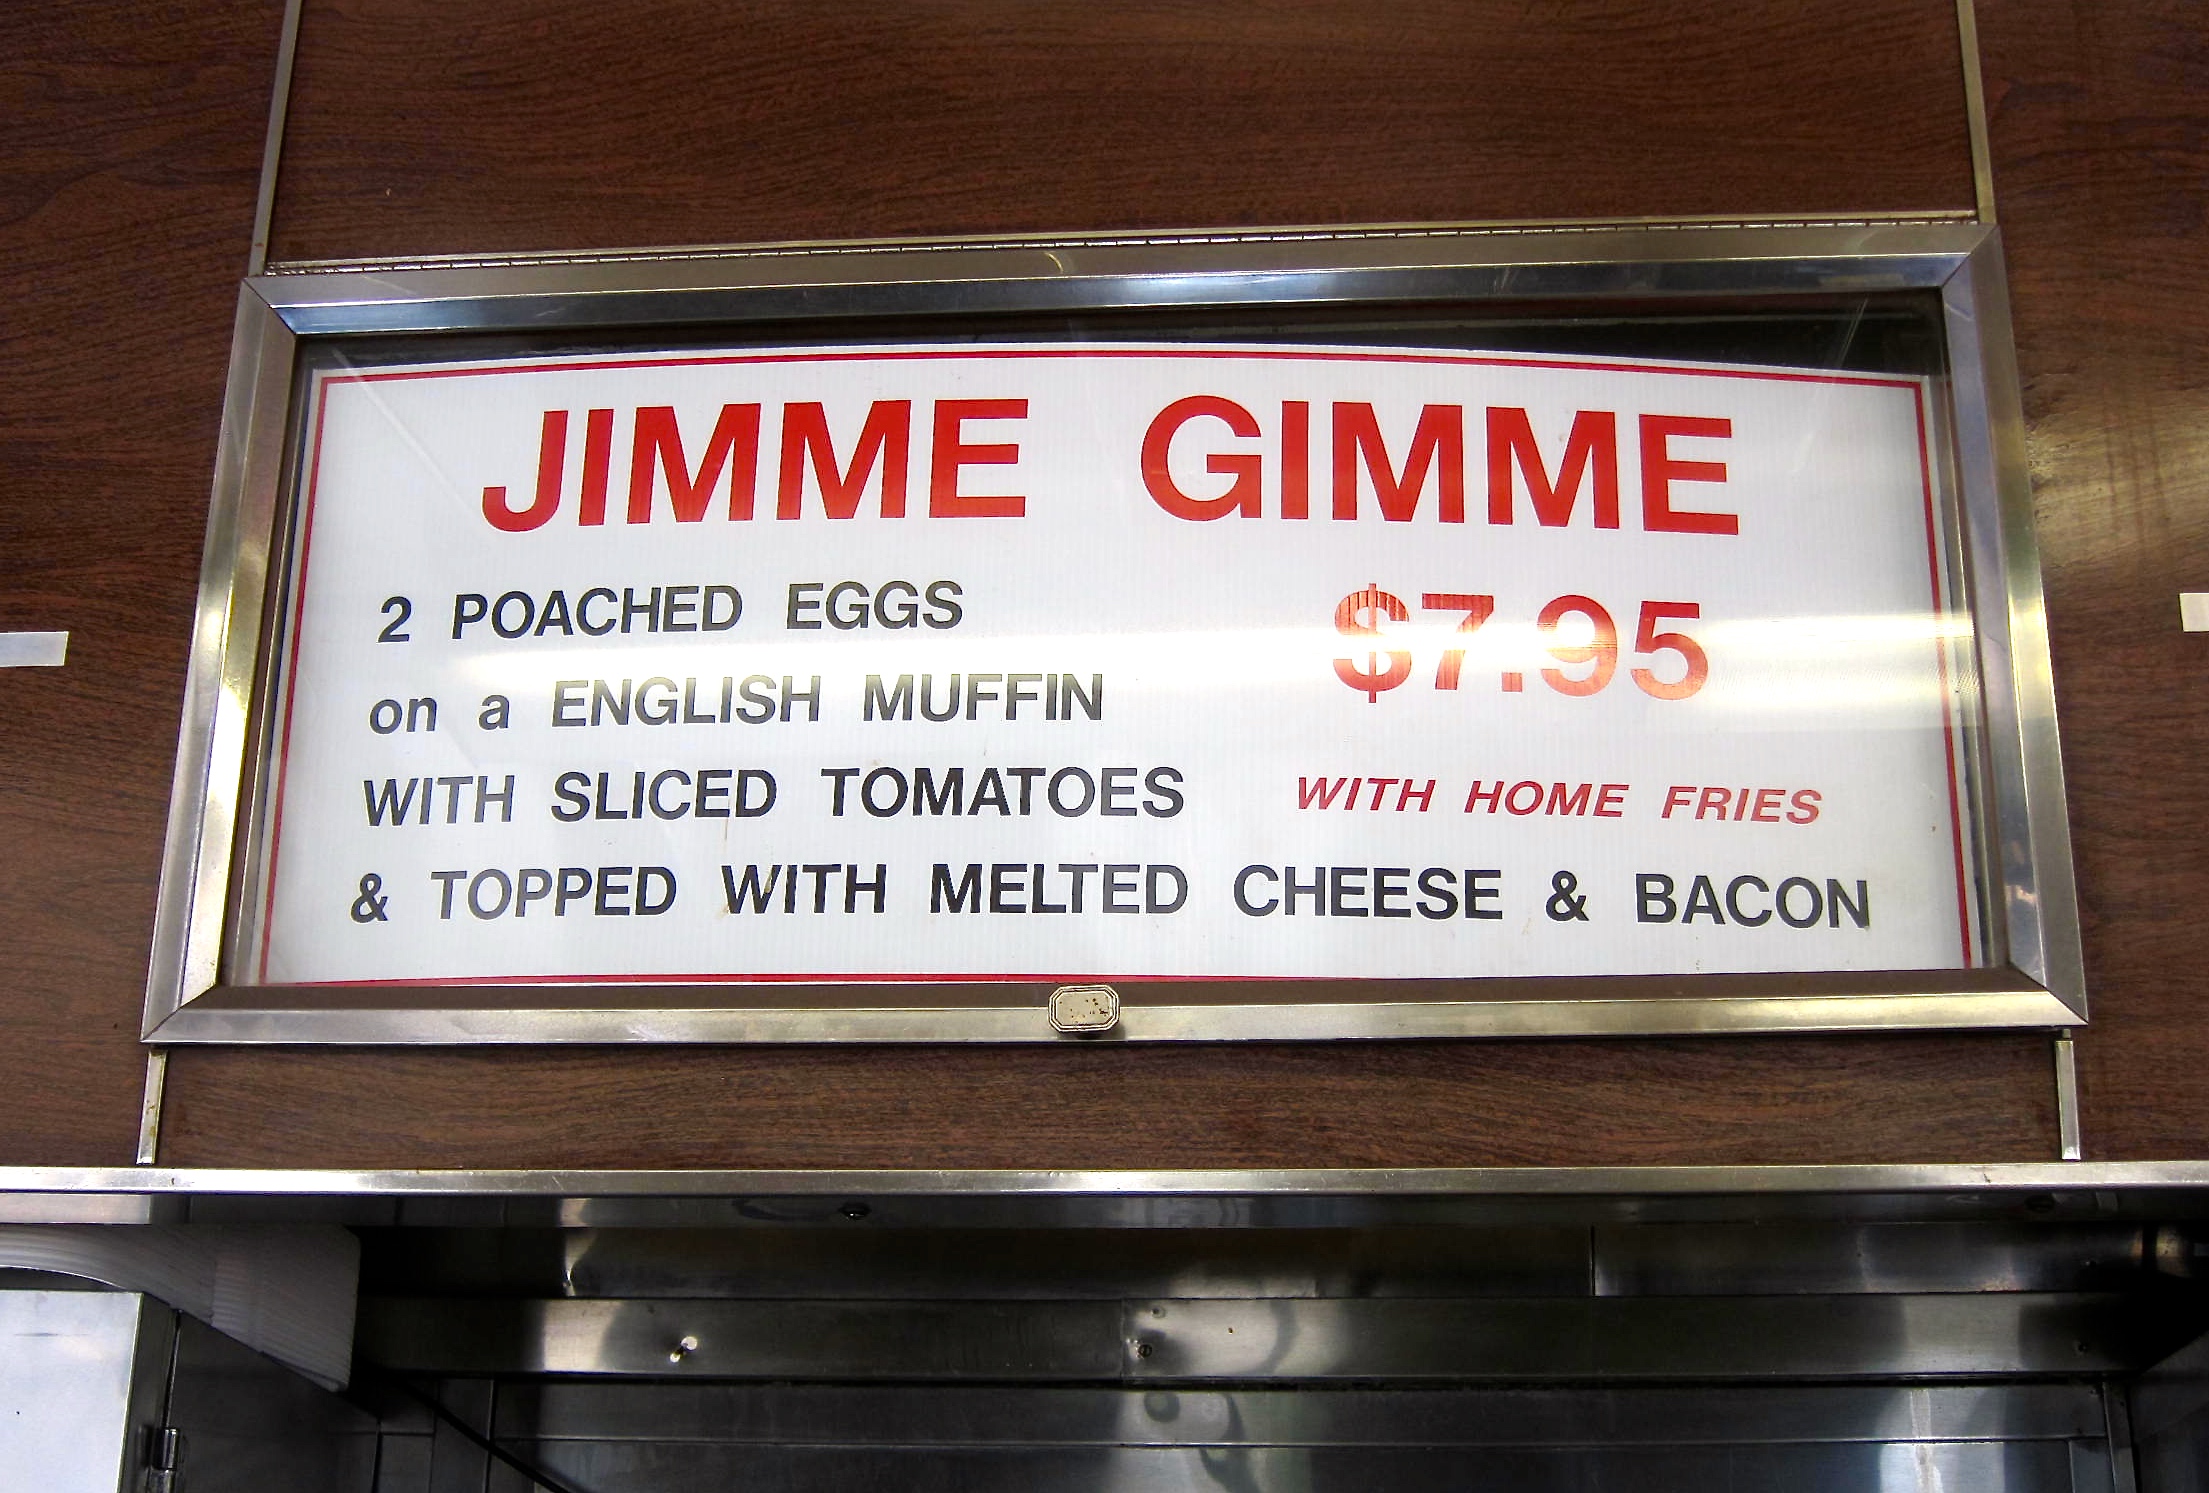 JIMME GIMME
2 POACHED EGGS
$7.95
on a ENGLISH MUFFIN
WITH SLICED TOMATOES
WITH HOME FRIES
& TOPPED WITH MELTED CHEESE & BACON